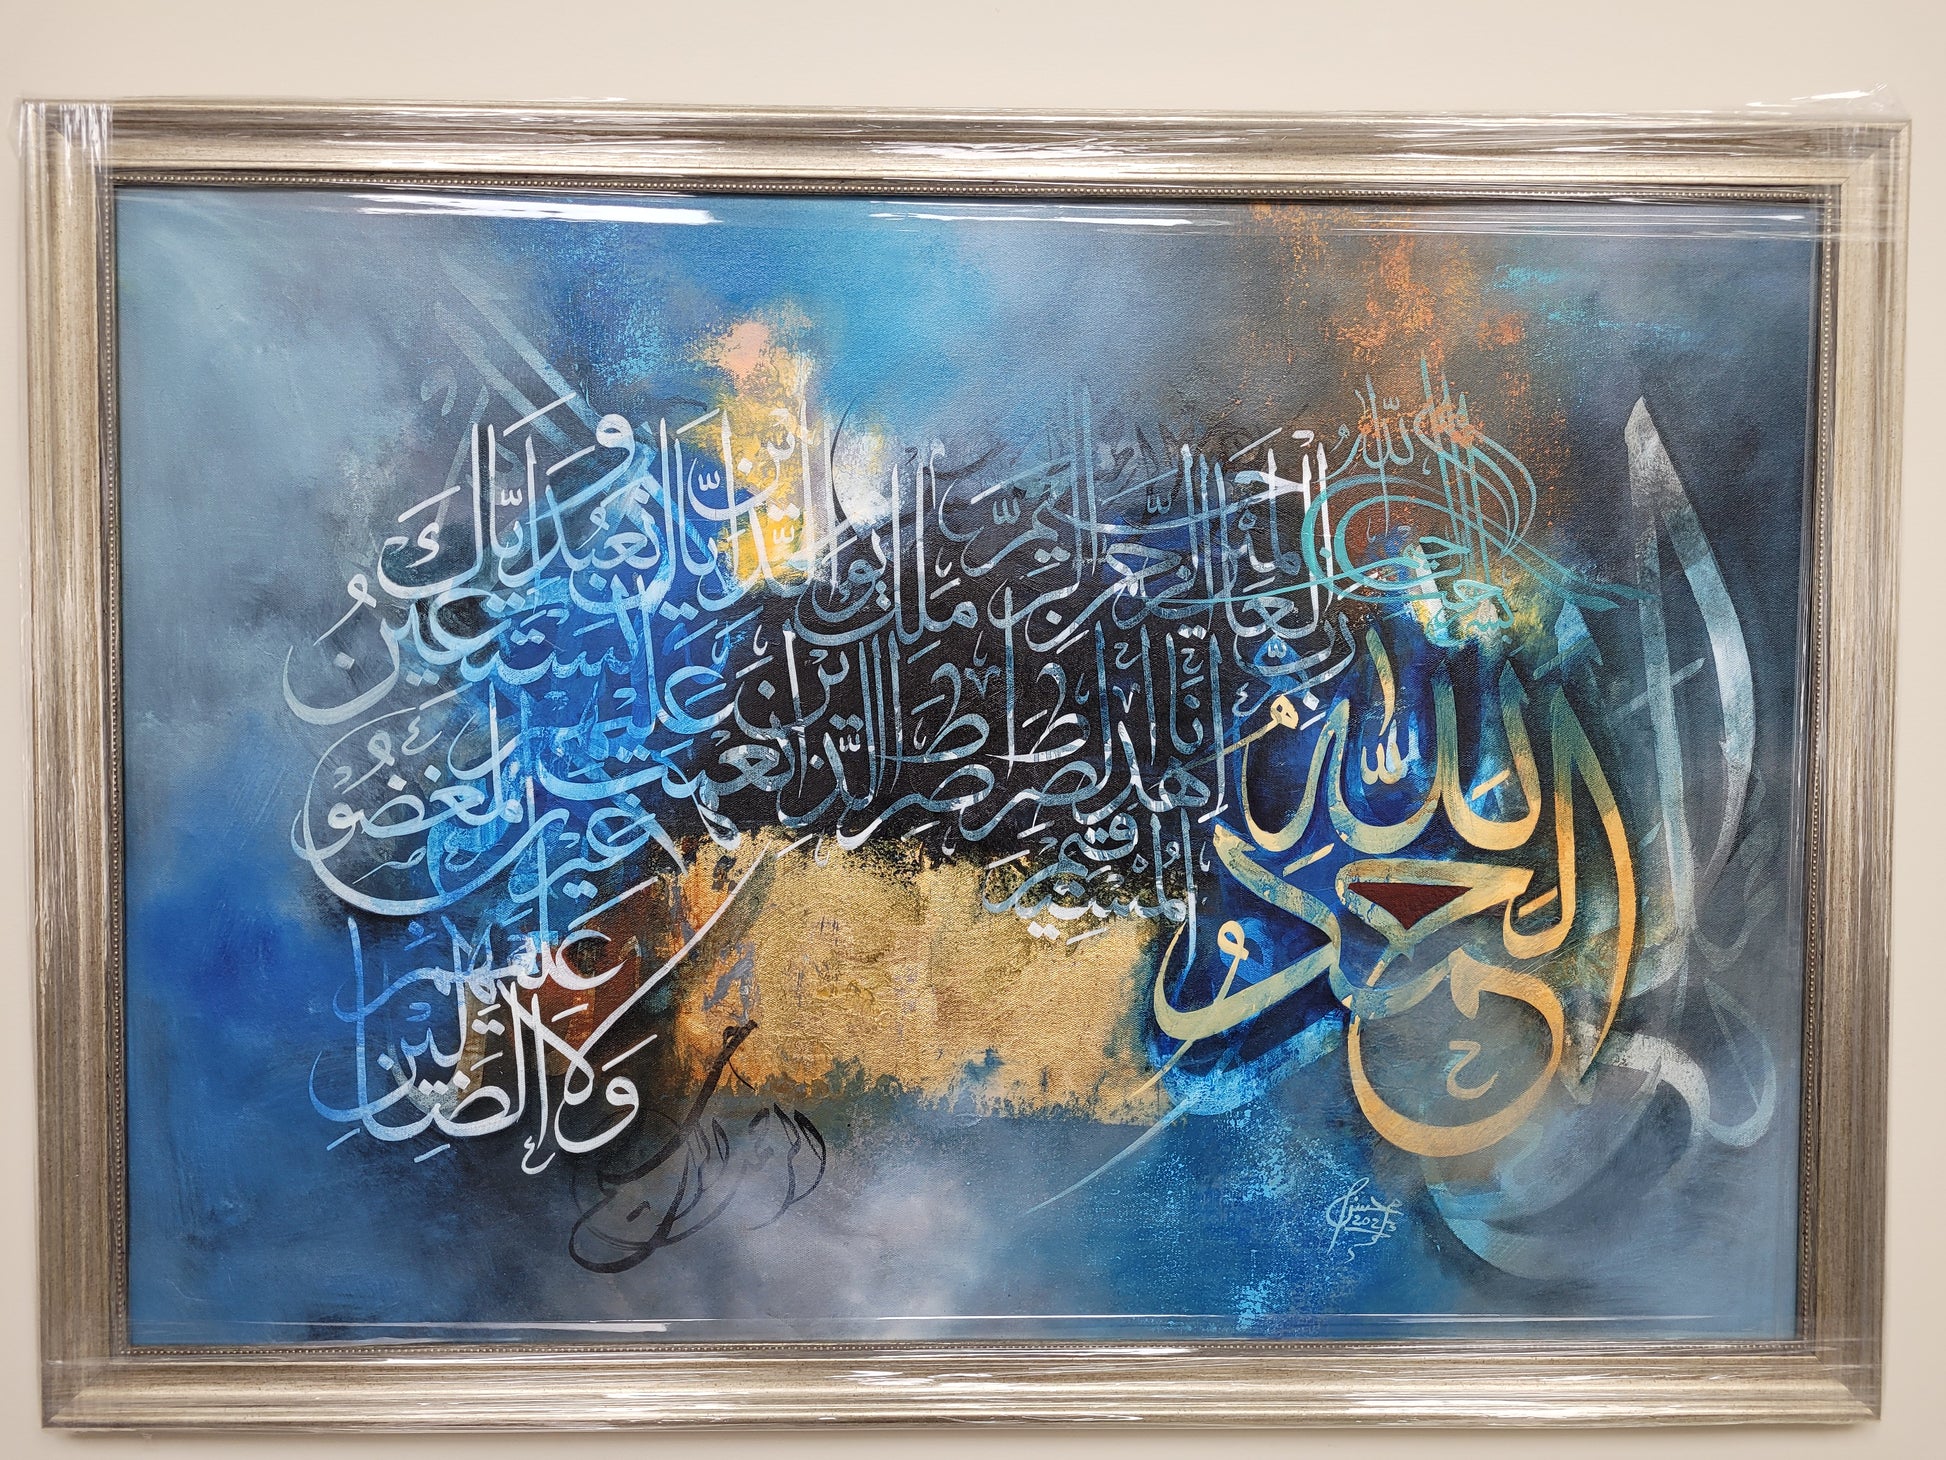 بسم الله الرحمن الرحيم
الْحَمْدُ لِلَّهِ
رَبِّ الْعَالَمِينَ الرَّحْمَنِ الرَّحِيمِ
مَلِكِ يَوْمِ الدِّينِ
إِيَّاكَ نَعْبُدُ وَإِيَّاكَ نَسْتَعِينُ
اهْدِنَا الصِّرَاطَ الْمُسْتَقِيمَ
صِرَاطَ الَّذِينَ أَنْعَمْتَ عَلَيْهِمْ
غَيْرِ الْمَغْضُوبِ عَلَيْهِمْ
وَلَا الضَّالِّينَ
الرحمن الرحيم
2023